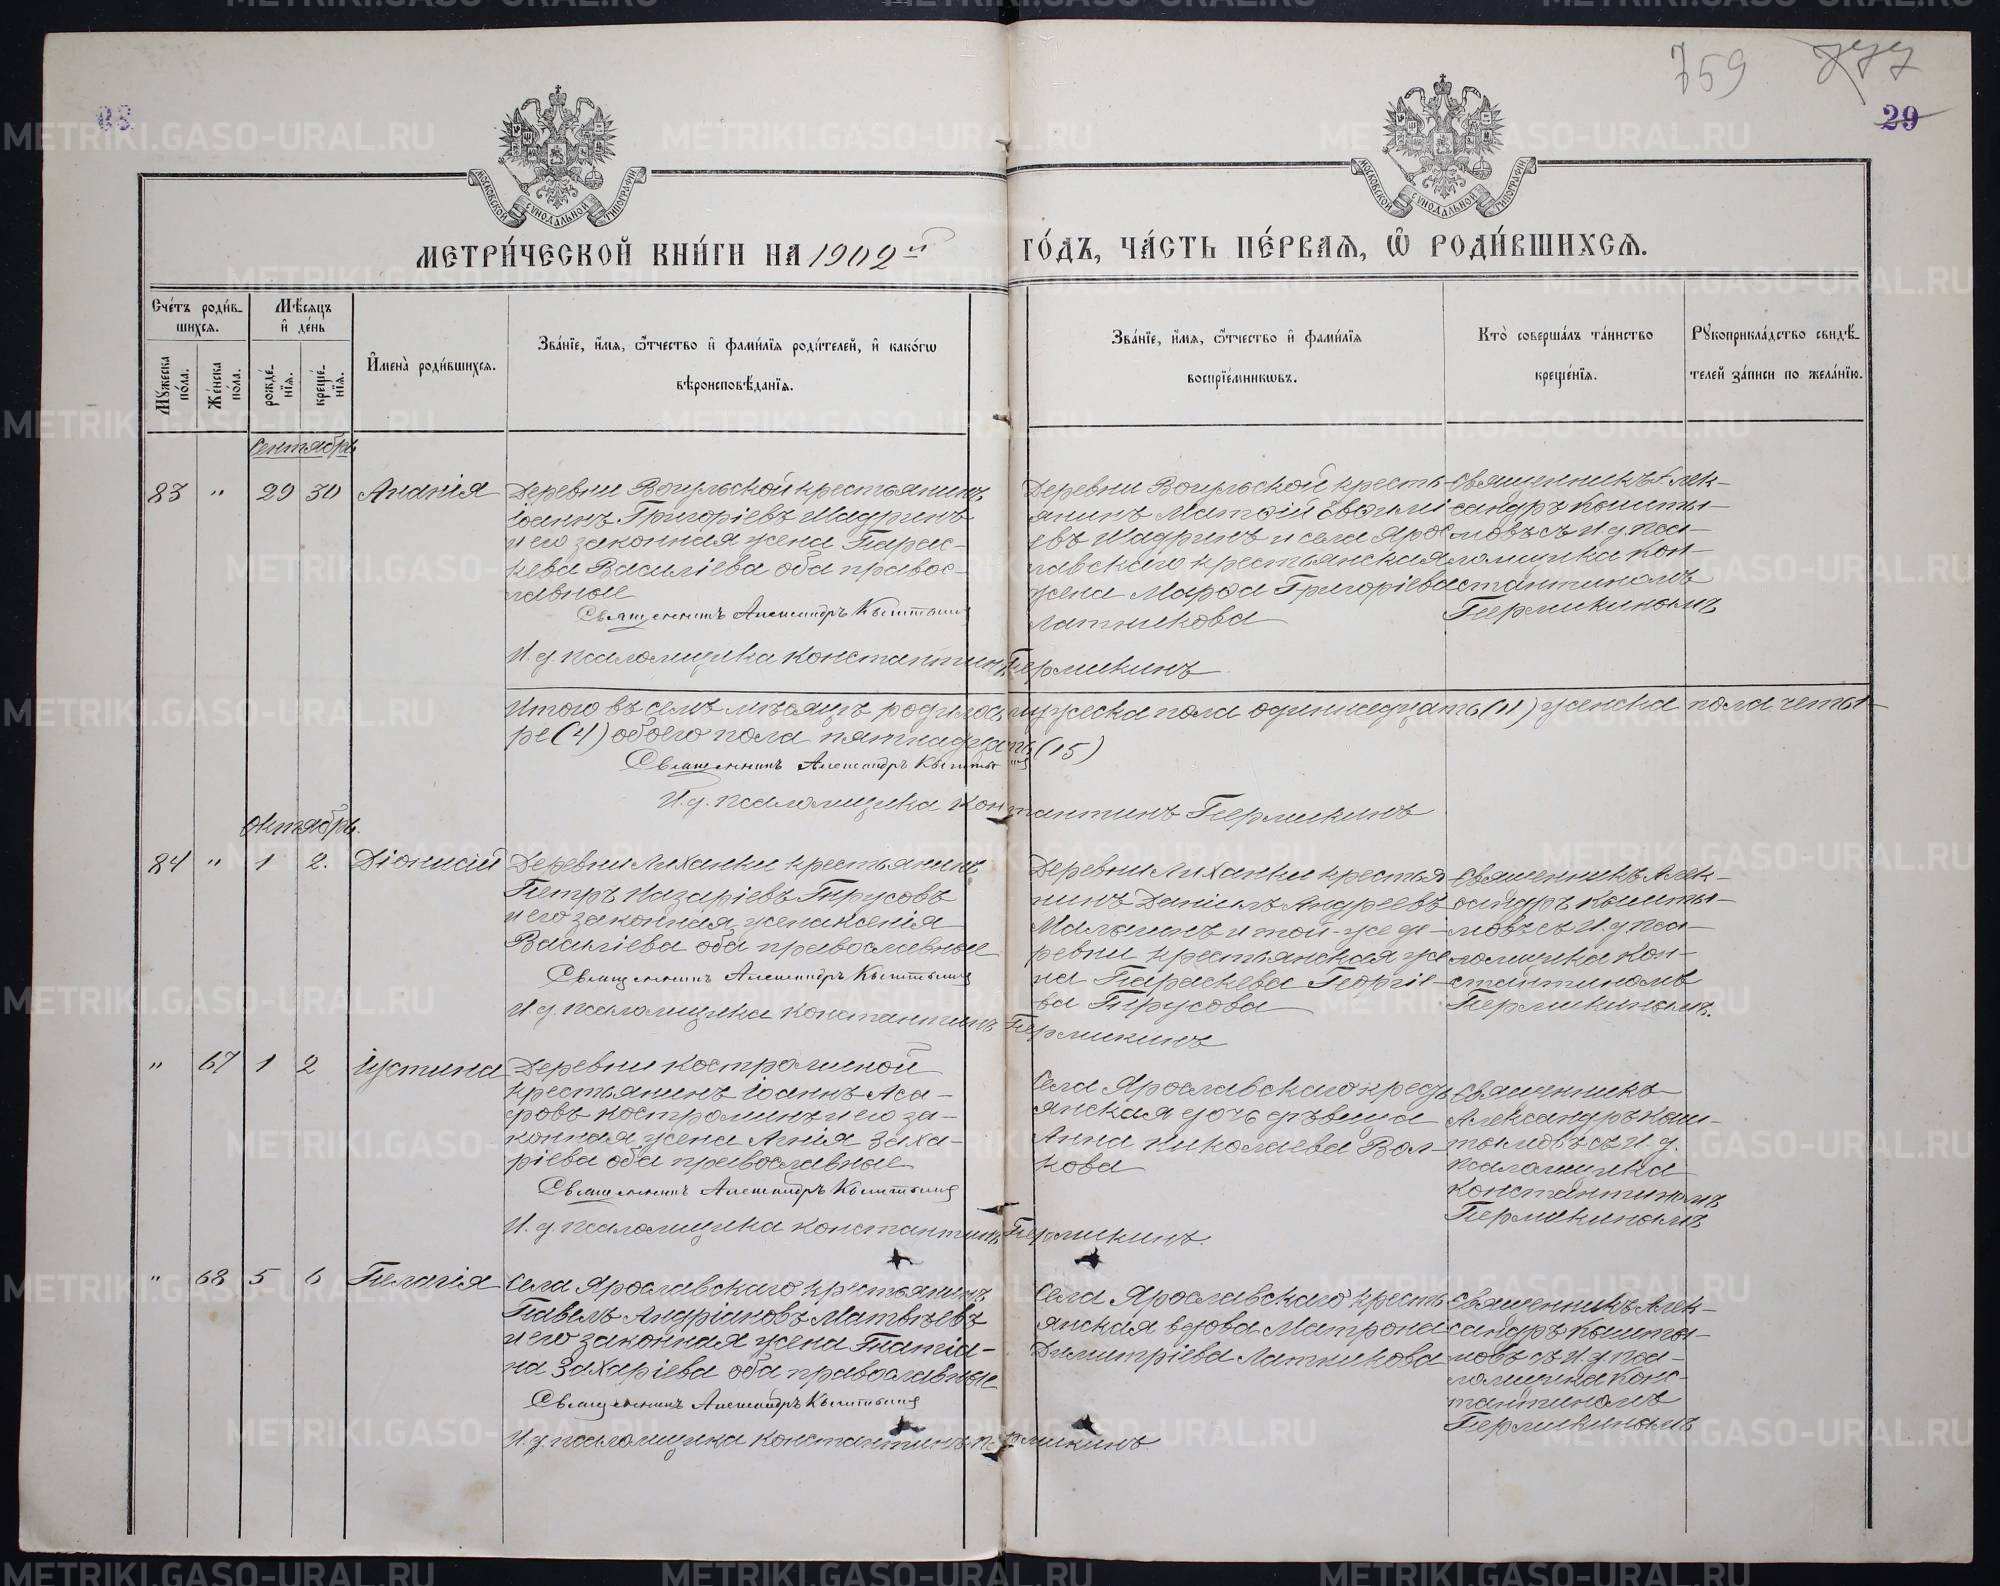 759
29
МОСКОВСКОЙ СУНОДАЛЬНОЙ ТИПОГРАФІИ
МОСКОВСКОЙ СУНОДАЛЬНОЙ ТИПОГРАФІИ
МЕТРИ́ЧЕСКОЙ КНИ́ГИ НА 1902 й
ГО́ДЪ, ЧА́СТЬ ПЕ́РВАЯ, Ѡ РОДИ́ВШИХСЯ.
Сче́тъ роди́в-
шихся.
Мѣ́сяцъ
и҆ де́нь
Мꙋ́жеска по́ла.
Же́нска по́ла.
рожде́нїѧ.
креще́нїѧ.
И҆мена̀ роди́вшихся.
Зва́нїе, и҆́мя, ѻ҆́тчество и҆ фами́лїя роди́телей, и҆ како́гѡ
вѣроисповѣ́данїя.
Зва́нїе, и҆́мя, ѻ҆́тчество и҆ фами́лїя
воспрїе́мникѡвъ.
Кто̀ соверша́лъ та́инство
креще́нїя.
Рꙋкоприкла́дство свидѣ́-
телей за́писи по жела́нїю.
Сентябрь
83 " 29 30 Ананія
Деревни Вогульской крестьянинъ
Іоаннъ Григоріевъ Шадринъ
и его законная жена Парас-
кева Василіева оба правос-
лавные
Священникъ Александръ Кыштымовъ
И. д. псаломщика Константинъ Пермикинъ
Деревни Вогульской кресть-
янинъ Матѳій Евѳимі
евъ Шадринъ и села Ярос
лавскаго крестьянская
жена Марѳа Григоріева
Латникова
Священникъ Алек-
сандръ Кышты-
мовъ съ И. д. пса-
ломщика Кон-
стантиномъ
Пермикинымъ
Итого въ семъ мѣсяцѣ родилось мужеска пола одиннадцать (11) женска пола четы-
ре (4) обоего пола пятнадцать (15)
Священникъ Александръ Кыштымовъ
И. д. псаломщика Константинъ Пермикинъ
Октябрь.
84 " 1 2. Діонисій
Деревни Лиханки крестьянинъ
Петръ Назаріевъ Прусовъ
и его законная жена Ксенія
Василіева оба православные
Священникъ Александръ Кыштымовъ
И д. псаломщика Константинъ Пермикинъ
Деревни Лиханки крестья
нинъ Даніилъ Андреевъ
Малыгинъ и той-же де-
ревни крестьянская же
на Параскева Георгіе-
ва Прусова
Священникъ Алек-
сандръ Кышты-
мовъ съ И. д. пса-
ломщика Кон-
стантиномъ
Пермикинымъ.
" 67 1 2 Іустина
Деревни Костроминой
крестьянинъ Іоаннъ Аса-
фовъ Костроминъ и его за-
конная жена Агнія Заха-
ріева оба православные
Священникъ Александръ Кыштымовъ
И. д. псаломщика Константинъ Пермикинъ.
Села Ярославскаго кресть
янская дочь дѣвица
Анна Николаева Вол-
кова
Священникъ
Александръ Кыш-
тымовъ съ И. д.
псаломщика
Константиномъ
Пермикинымъ
" 68 5 6 Пелагія
Села Ярославскаго крестьянинъ
Павелъ Андріановъ Матвѣевъ
и его законная жена Татіа-
на Захаріева оба православные
Священникъ Александръ Кыштымовъ
И. д. псаломщика Константинъ Пермикинъ
Села Ярославскаго кресть
янская вдова Матрона
Димитріева Латникова
Священникъ Алек-
сандръ Кышты-
мовъ съ И. д. пса-
ломщика Конс-
тантиномъ
Пермикинымъ
METRIKI.GASO-URAL.RU